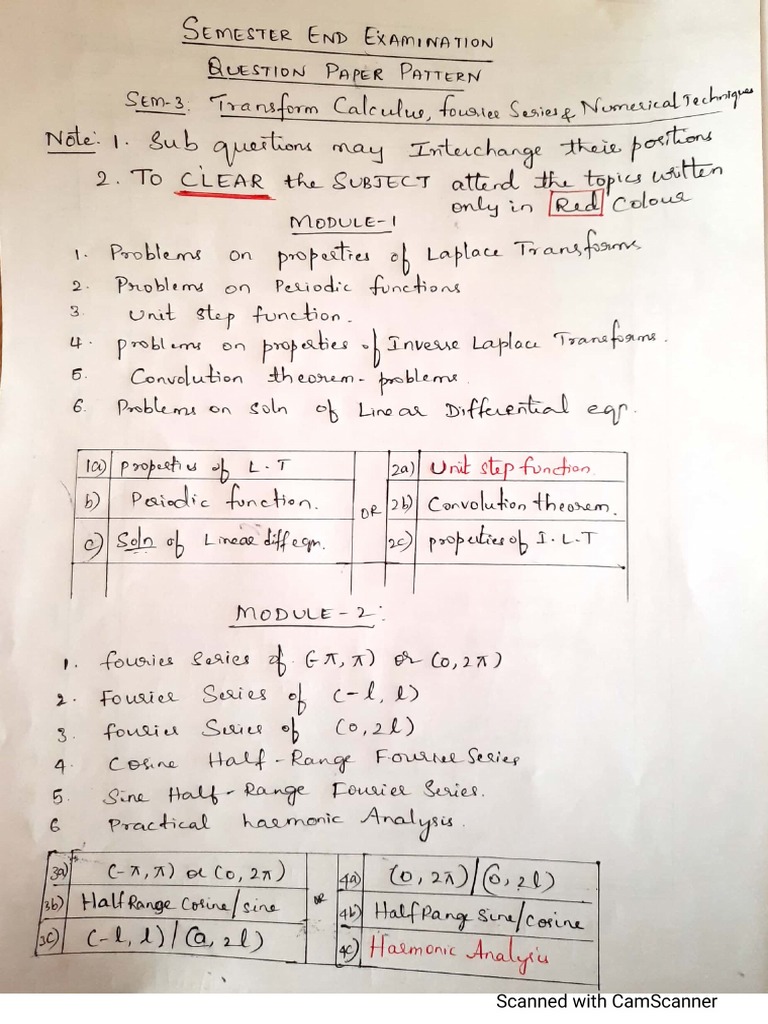 SEMESTER END EXAMINATION
QUESTION PAPER PATTERN
SEM-3: Transform Calculus, Fourier Series & Numerical Techniques
Note: 1. Sub questions may Interchange their positions
2. To CLEAR the SUBJECT attend the topics written
only in Red Colour
MODULE-1
1. Problems on properties of Laplace Transforms
2. Problems on Periodic functions
3. Unit step function.
4. problems on properties of Inverse Laplace Transforms.
5. Convolution theorem - problems.
6. Problems on soln of Linear Differential eqn.
1a) properties of L.T OR 2a) Unit step function.
b) Periodic function. 2b) Convolution theorem.
c) Soln of Linear diff eqn. 2c) properties of I.L.T
MODULE-2:
1. fourier series of (-π, π) or (0, 2π)
2. Fourier Series of (-l, l)
3. fourier Series of (0, 2l)
4. Cosine Half-Range Fourier Series
5. Sine Half-Range Fourier Series.
6 Practical harmonic Analysis.
3a) (-π, π) or (0, 2π) OR 4a) (0, 2π)/(0, 2l)
3b) Half Range Cosine/sine 4b) Half Range Sine/cosine
3c) (-l, l)/(0, 2l) 4c) Harmonic Analysis
Scanned with CamScanner